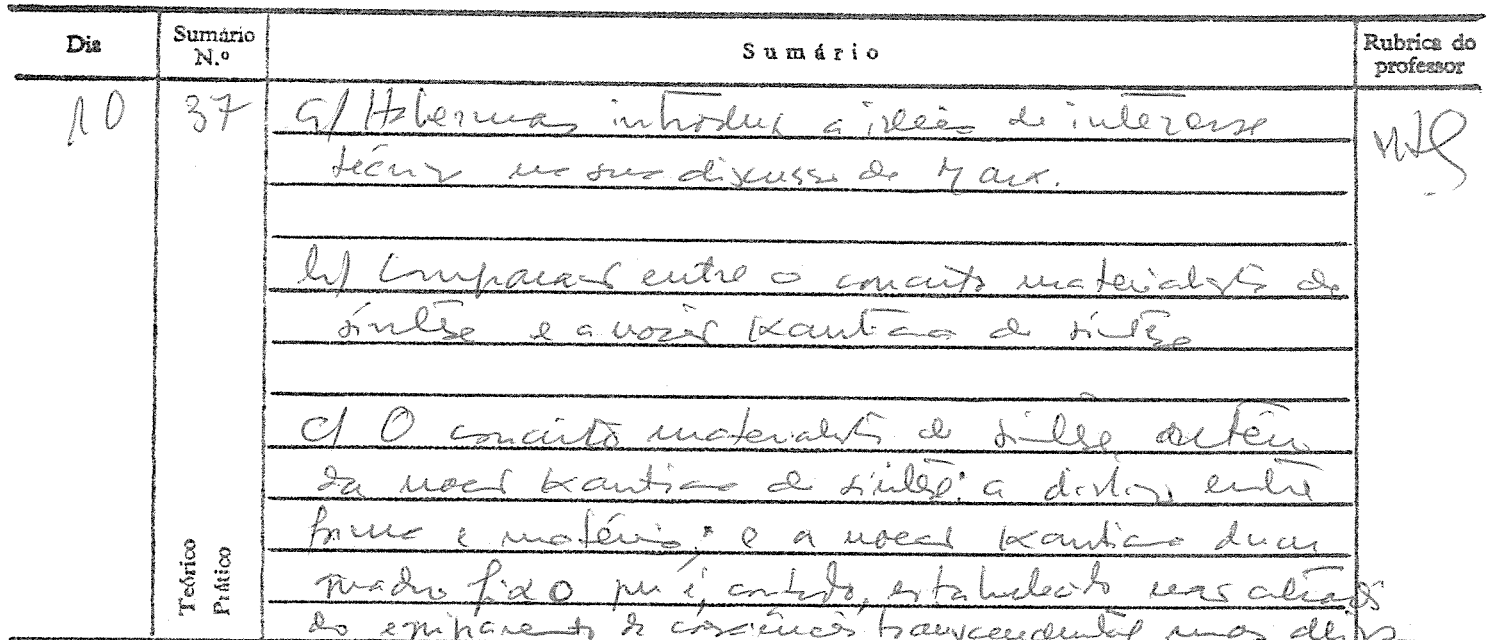 Dia
Sumário N.º
Sumário
Rubrica do professor
10
37
a/ Habermas introduz a ideia de interesse
técnico na sua discussão de Marx.
b/ Comparação entre o conceito materialista de
síntese e a noção Kantiana de síntese
c/ O conceito materialista de síntese retém
da noção Kantiana de síntese: a distinção entre
forma e matéria; e a noção Kantiana dum
quadro fixo que é, contudo, estabelecido
do equipamento da consciência transcendental mas
Teórico
Prático